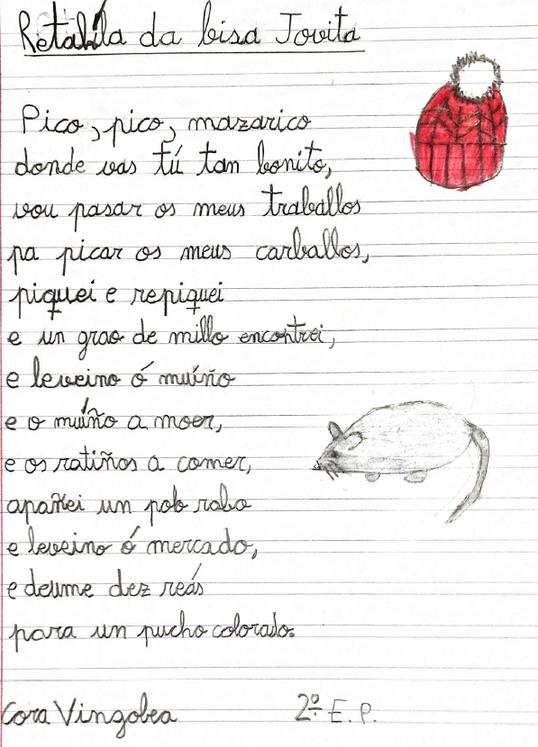 Retahíla da bisa Jovita
Pico, pico, mazarico
donde vas tú tan bonito,
vou pasar os meus traballos
pa picar os meus carballos,
piquei e repiquei
e un grao de millo encontrei,
e leveino ó muíño
e o muíño a moer,
e os ratiños a comer,
apañei un polo rabo
e leveino ó mercado,
e deume dez reás
para un pucho colorado.
Cora Vingobea 2º E. P.